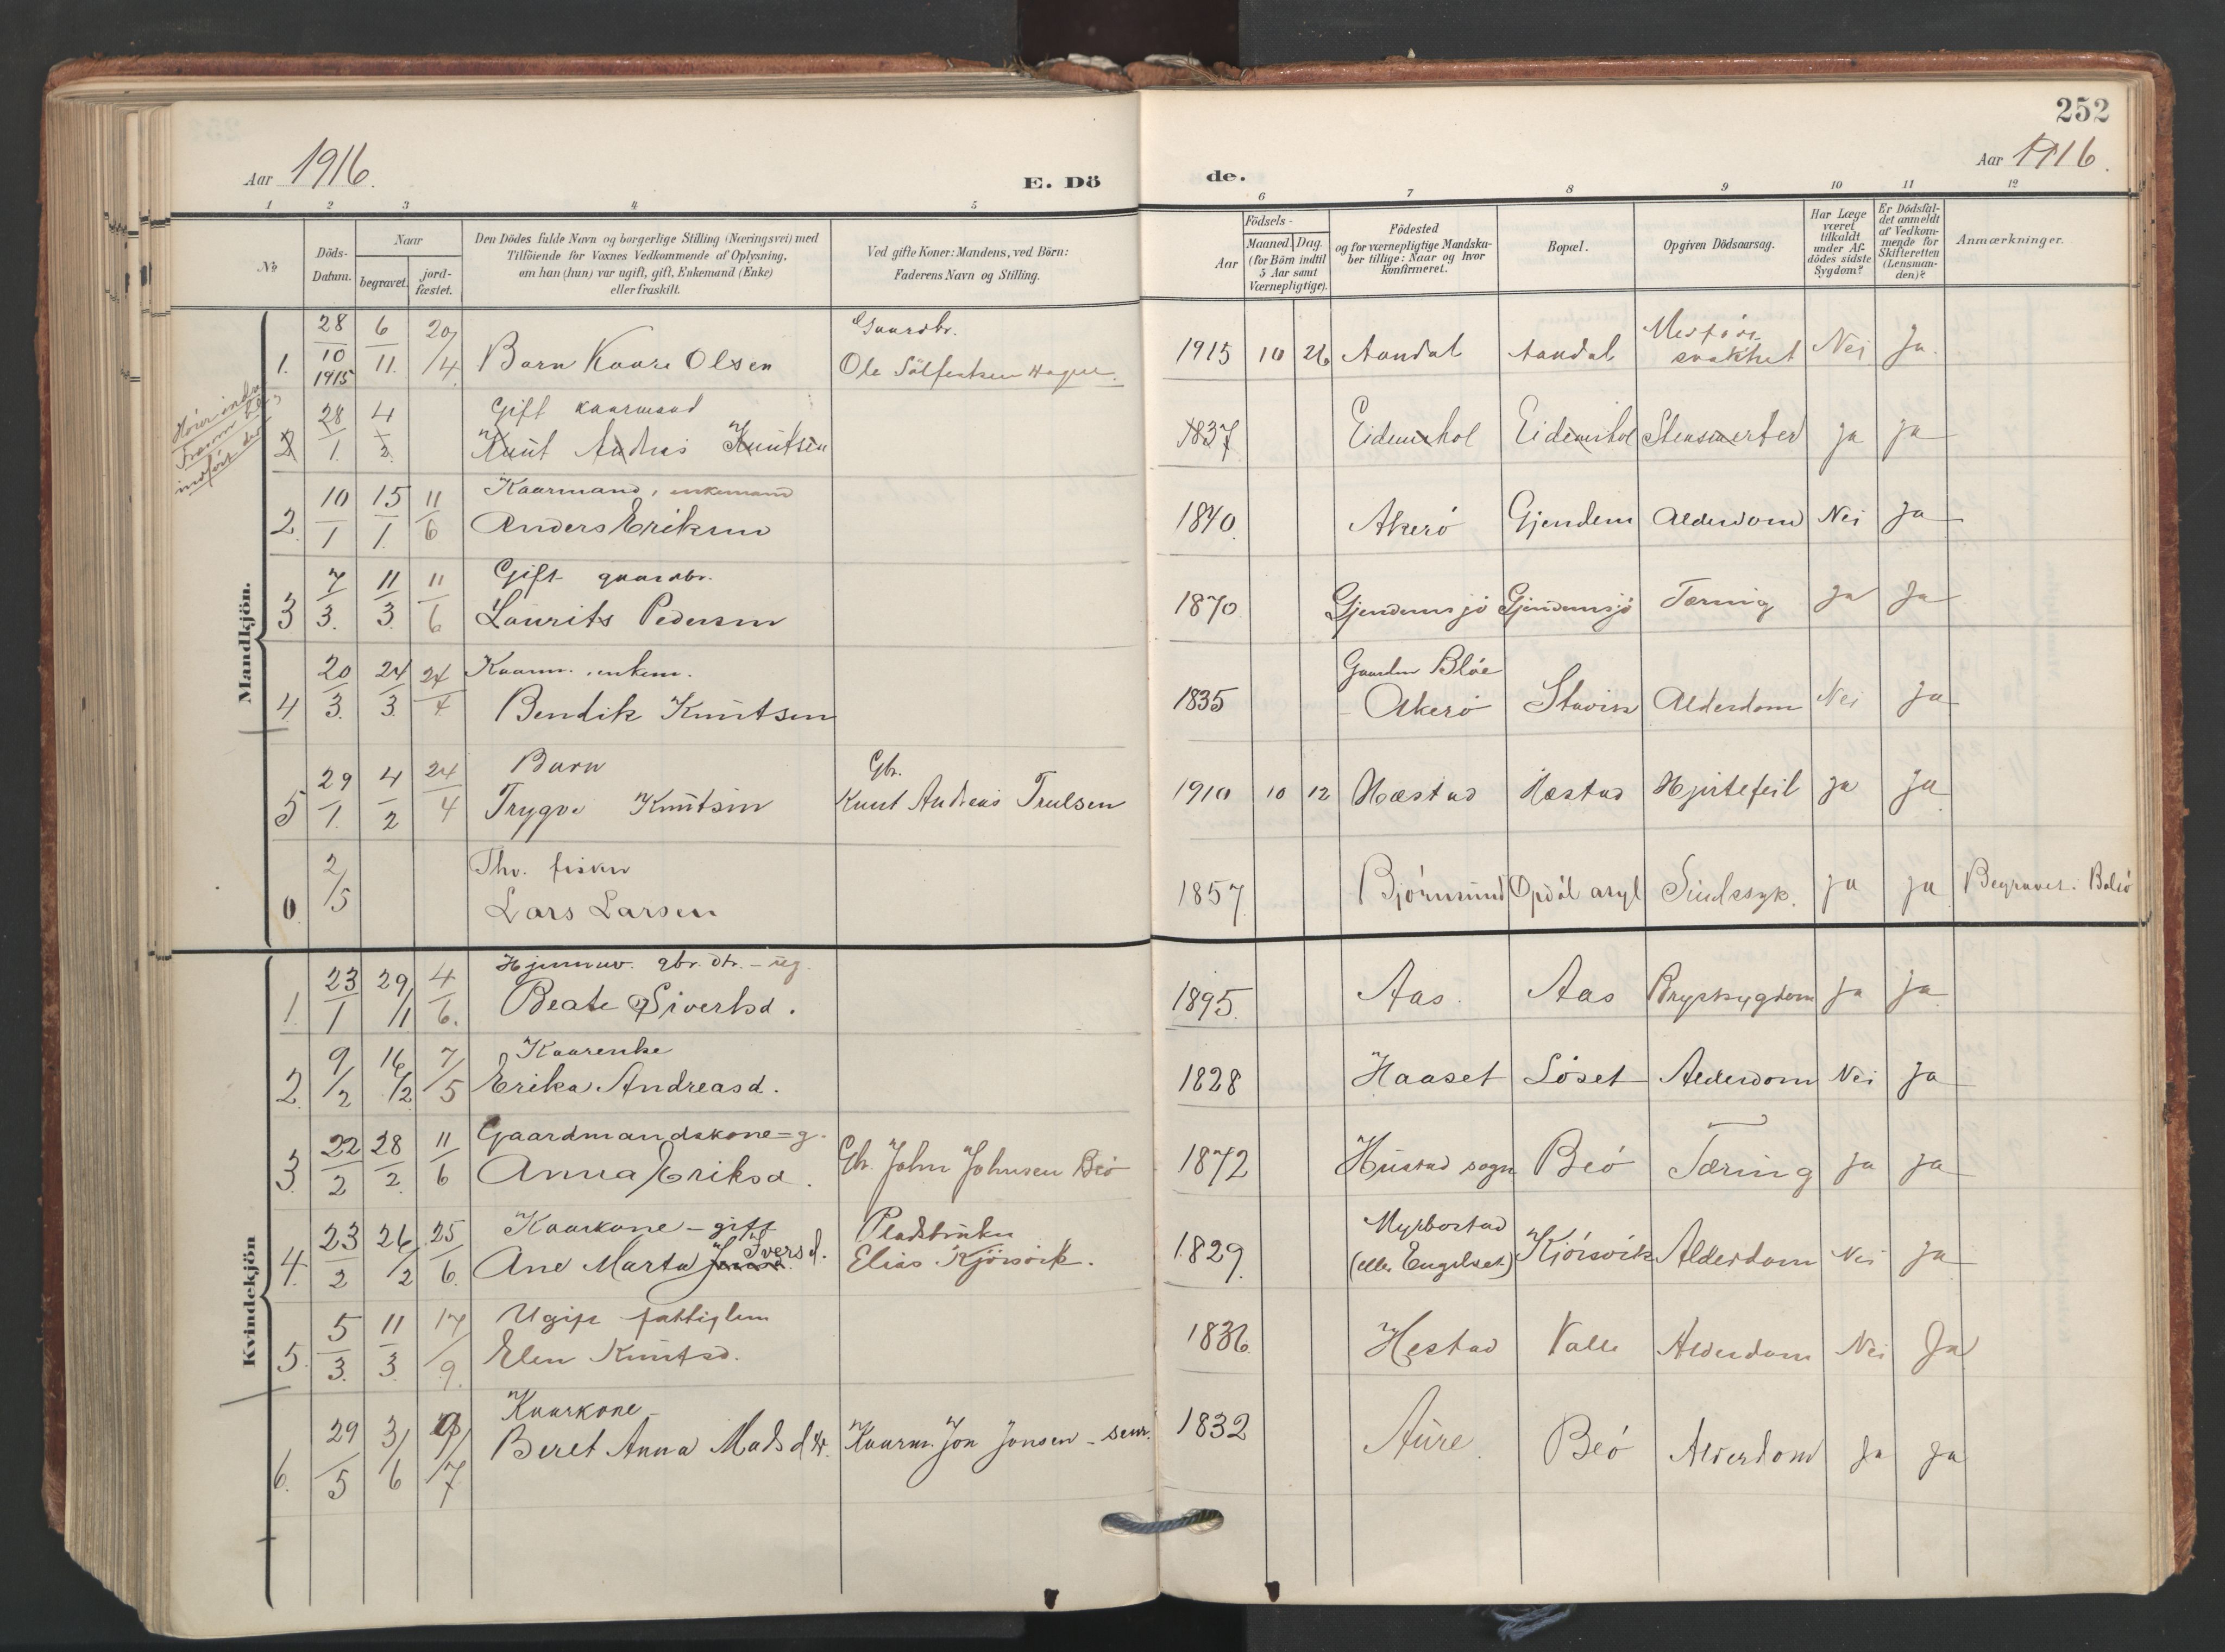 252
Aar 1916.
E. Dö
de.
Aar 1916.
1 2 3 4 5 6 7 8 9 10 11 12
No
Döds-Datum.
Naar
begravet.
jord-fæstet.
Den Dödes fulde Navn og borgerlige Stilling (Næringsvei) med
Tilföiende for Voxnes Vedkommende af Oplysning,
om han (hun) var ugift, gift, Enkemand (Enke)
eller fraskilt.
Ved gifte Koner: Mandens, ved Börn:
Faderens Navn og Stilling.
Födsels-
Aar
Maaned. Dag.
(for Börn indtil
5 Aar samt
Værnepligtige).
Födested
og for værnepligtige Mandska-
ber tillige: Naar og hvor
Konfirmeret.
Bopæl.
Opgiven Dödsaarsag.
Har Læge
været
tilkaldt
under Af-
dödes sidste
Sygdom?
Er Dödsfal-
det anmeldt
af Vedkom-
mende for
Skifteretten
(Lensman-
den)?
Anmærkninger.
Mandkjön.
1. 28/10 1915 6/11. 20/4. Barn Kaare Olsen Gaardbr. Ole 1915 10 26 Aandal Aandal svakhet Nei Ja.
2 28/1. 4/2. Gift kaarmand Knut Andreas Knutsen 1837 Eidemshol Eidemshol ja ja
2. 10/1 15/1. 11/6 Kaarmand, enkemand Anders Eriksen 1840. Akerö Gjendem Alderdom Nei ja
3 7/3. 11/3. 11/6 Gift gaardbr. Laurits Pedersen 1870. Gjendemsjö Gjendemsjö Tæring ja ja
4 20/3. 24/3. 24/4 Kaarm. enkem. Bendik Knutsen 1835 Gaarden Blöe Akerö Stavik Alderdom Nei ja
5 29/1. 4/2 24/4 Barn Trygve Knutsen Gbr. Knut Andreas Trulsen 1910 10 12 Hæstad Hæstad Hjertefeil ja ja
0 2/5 Thv. fisker Lars Larsen 1857. Björnsund Opdöl asyl Sindssyk. ja ja Begravet i Bolsö
Kvindekjön
1. 23/1 29/1 4/6. Hjemmev. gbr. dtr. - ug. Beate Sivertsd. 1895. Aas. Aas Brystsygdom ja ja
2. 9/2 16/2 7/5 Kaarenke Erika Andreasd. 1828 Haaset Löset Alderdom Nei ja
3. 22/2 28/2. 11/6 Gaardmandskone - g. Anna Eriksd. Gbr. John Johnsen Beö 1872 Hustad sogn Beö Tæring ja ja
4. 23/2 26/2 25/6. Kaarkone - gift Ane Marta Iversd. Pladsbruker Elias Kjörsvik. 1829. Myrbostad (eller Engelset) Kjörsvik Alderdom Nei ja
5. 5/3. 11/3. 17/9. Ugift fattiglem Elen Knutsd. 1836. Hestad Valle Alderdom Nei Ja
6. 29/5 3/6 /7 Kaarkone - Beret Anna Madsdtr. Kaarm. Jon Jonsen - senr. 1832 Aure. Beö Alderdom ja ja